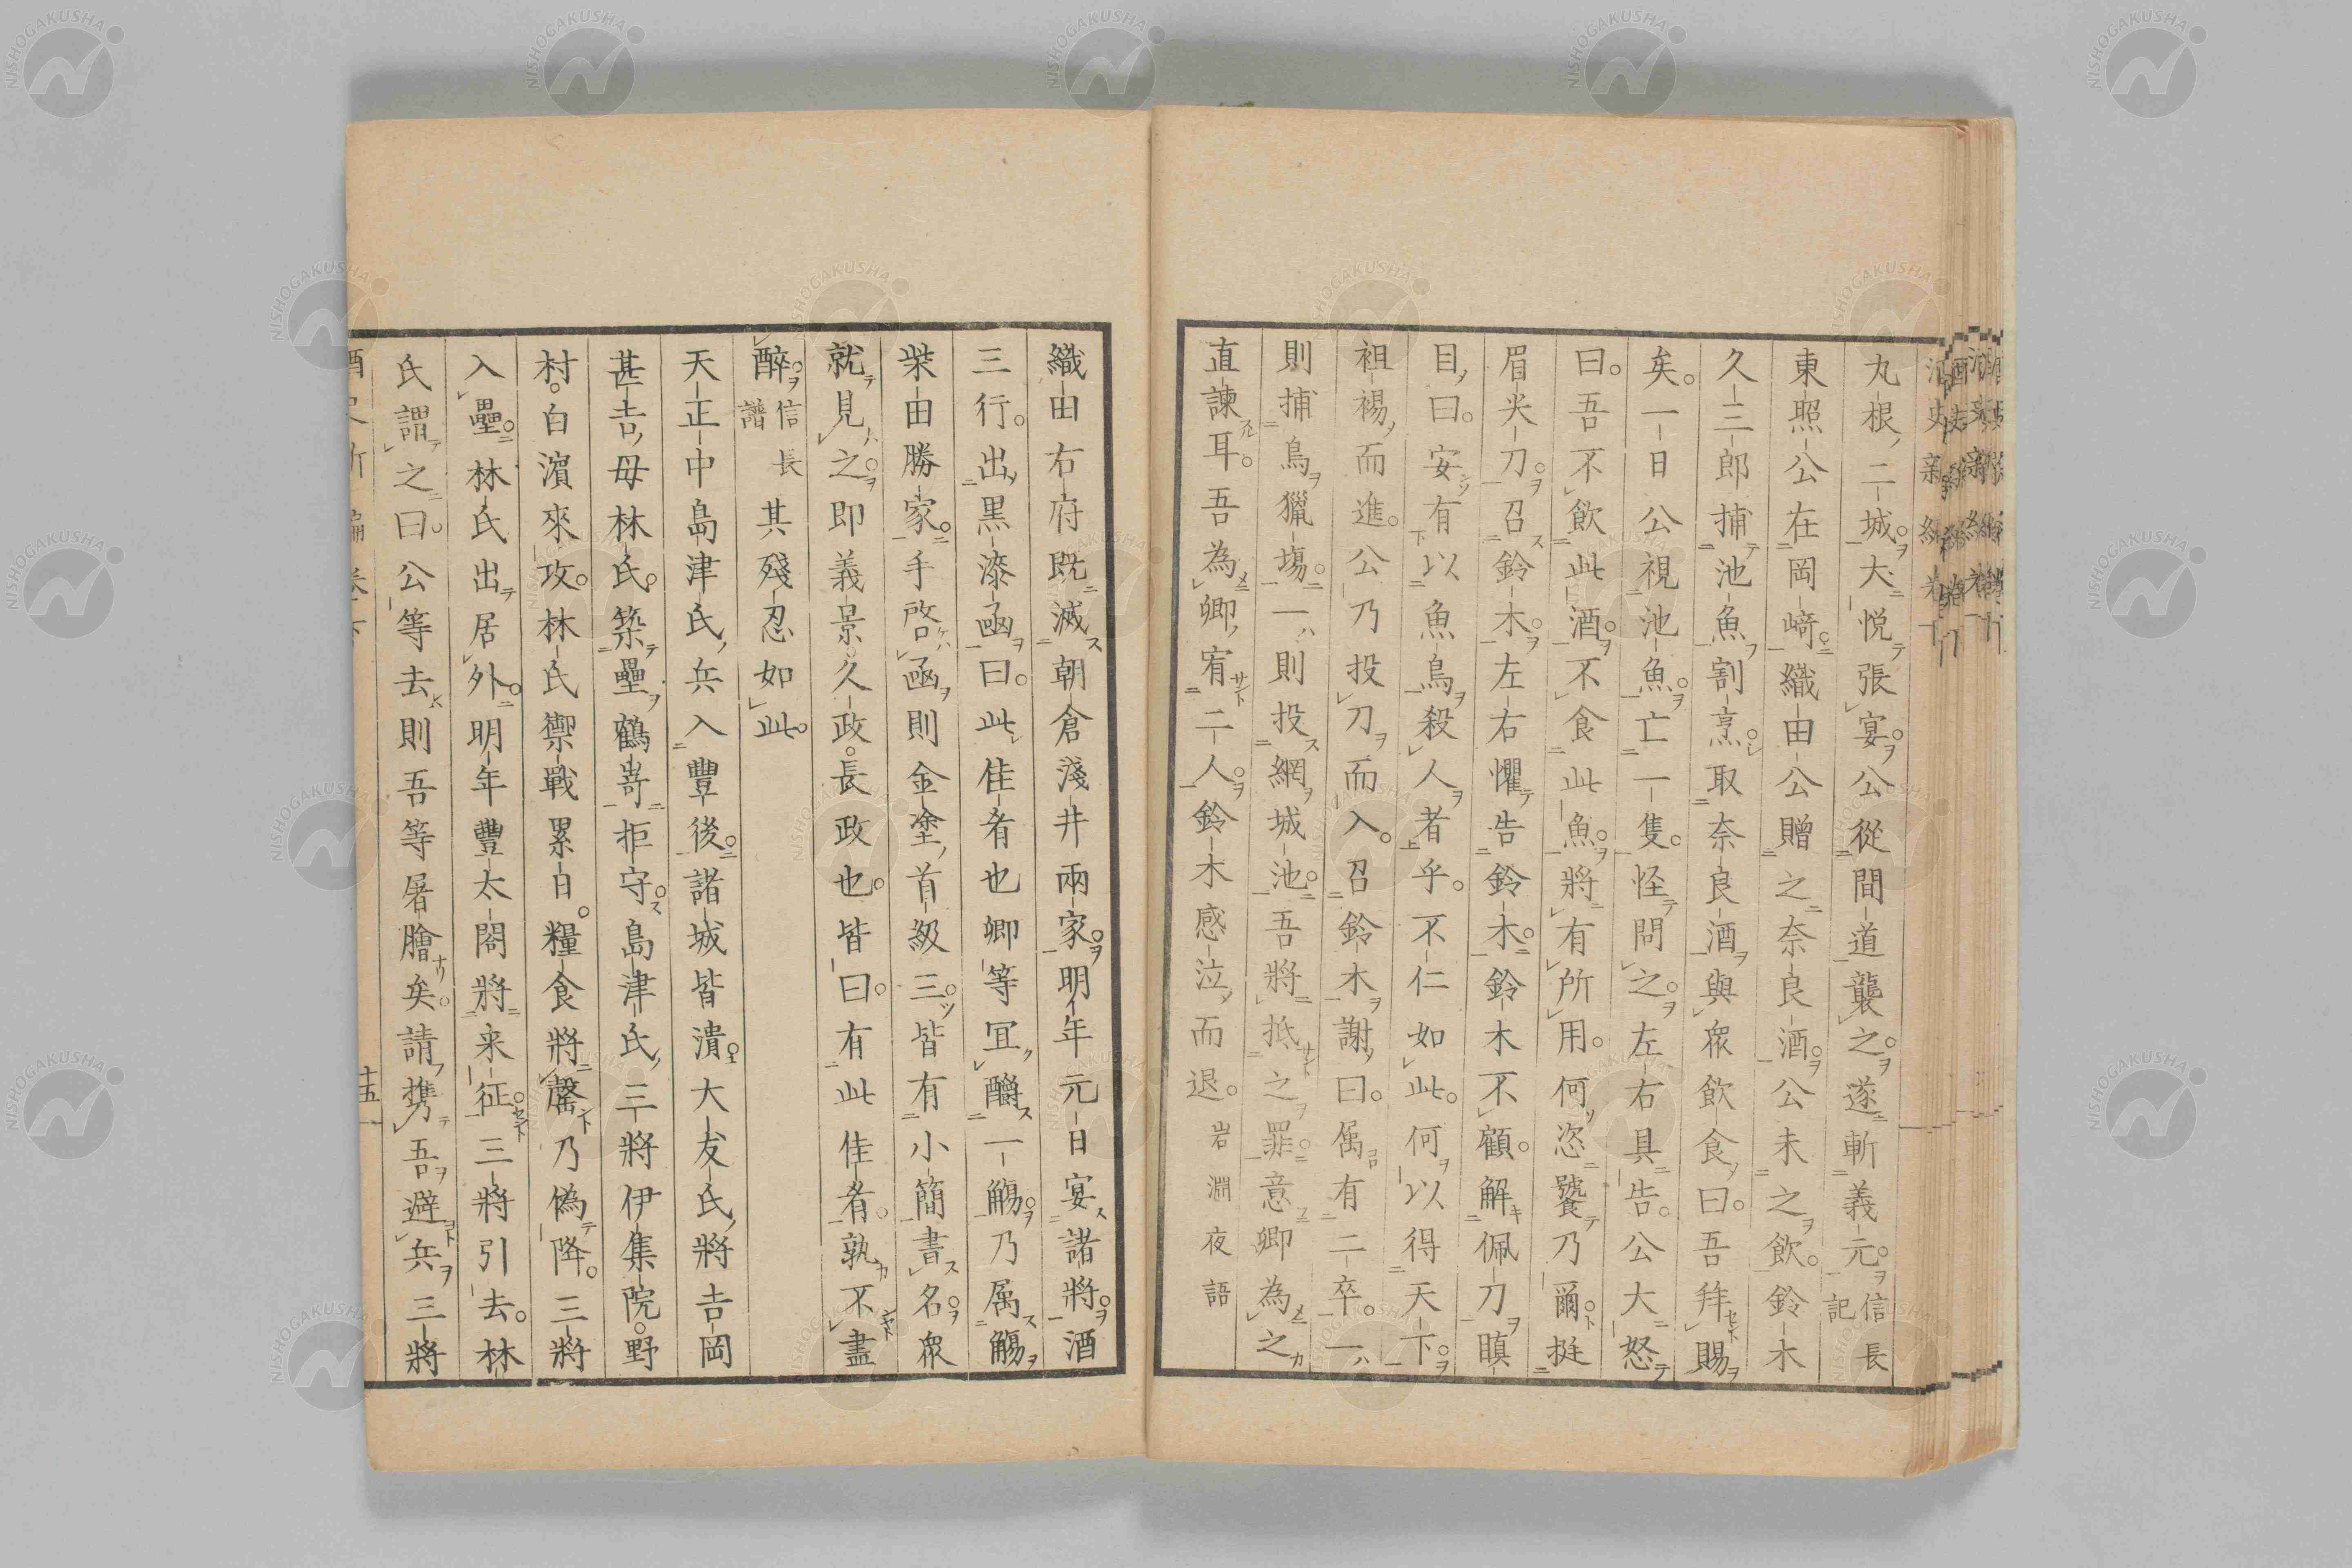 丸根二城大悅張宴公從間道襲之遂斬義元信長記
東照公在岡﨑織田公贈之奈良酒公未之飲鈴木
久三郎捕池魚割烹取奈良酒與衆飲食曰吾拜賜
矣一日公視池魚亡一隻怪問之左右具告公大怒
曰吾不飲此酒不食此魚將有所用何恣饕乃爾挺
眉尖刀召鈴木左右懼告鈴木鈴木不顧解佩刀瞋
目曰安有以魚鳥殺人者乎不仁如此何以得天下
袒裼而進公乃投刀而入召鈴木謝曰屬有二卒一
則捕鳥獵塲一則投網城池吾將抵之罪意卿為之
直諫耳吾為卿宥二人鈴木感泣而退岩淵夜語
織田右府既滅朝倉淺井兩家明年元日宴諸將酒
三行出黒漆函曰此佳肴也卿等宜釂一觴乃属觴
柴田勝家手啓函則金塗首級三皆有小簡書名衆
就見之即義景久政長政也皆曰有此佳肴孰不盡
醉信長譜其殘忍如此
天正中島津氏兵入豐後諸城皆潰大友氏將吉岡
甚吉母林氏築壘鶴嵜拒守島津氏三將伊集院野
村白濵來攻林氏禦戰累日糧食將罄乃偽降三將
入壘林氏出居外明年豐太閤將来征三將引去林
氏謂之曰公等去則吾等屠膾矣請携吾避兵三將
十五